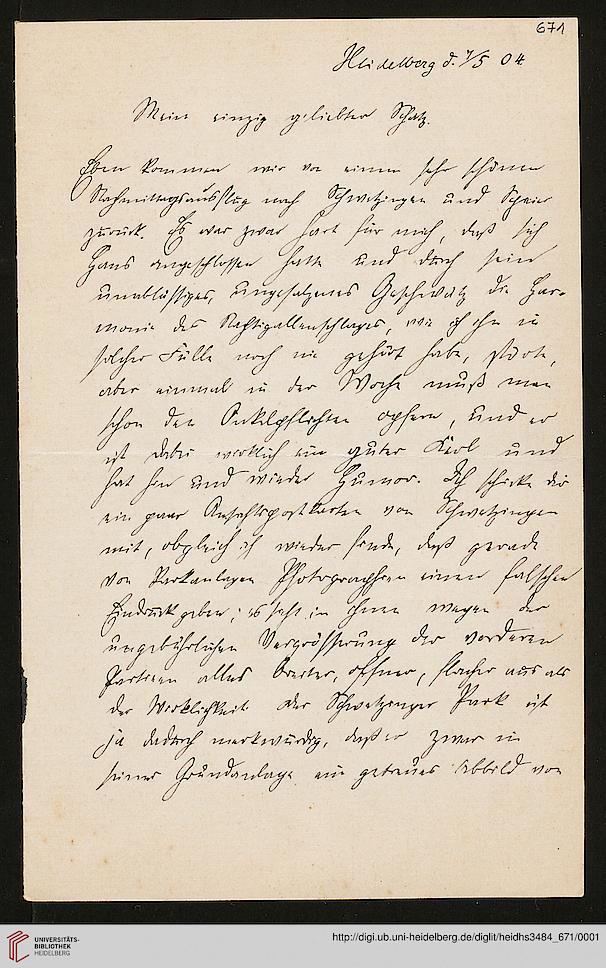 671
Heidelberg d. 7/5 04
Mein einzig geliebter Schatz.
Eben kommen wir von einem sehr schönen
Nachmittagsausflug nach Schwetzingen und Speier
zurück. Es war zwar hart für mich, daß sich
Hans angeschlossen hatte und durch sein
unablässiges, ungesalzenes Geschwätz die Har-
monie des Nachtigallenschlages, wie ich ihn in
solcher Fülle noch nie gehört habe, störte,
aber einmal in der Woche muß man
schon den Onkelpflichten opfern, und er
ist dabei wirklich ein guter Kerl und
hat hin und wieder Humor. Ich schicke dir
ein paar Ansichtspostkarten von Schwetzingen
mit, obgleich ich wieder finde, daß gerade
von Parkanlagen Photographien einen falschen
Eindruck geben; es sieht in ihnen wegen der
ungebührlichen Vergrösserung der vorderen
Partieen alles breiter, offner, flacher aus als
in der Wirklichkeit. Der Schwetzinger Park ist
ja dadurch merkwürdig, daß er zwar in
seiner Grundanlage ein getreues Abbild von
UNIVERSITÄTS-
BIBLIOTHEK
HEIDELBERG
http://digi.ub.uni-heidelberg.de/diglit/heidhs3484_671/0001